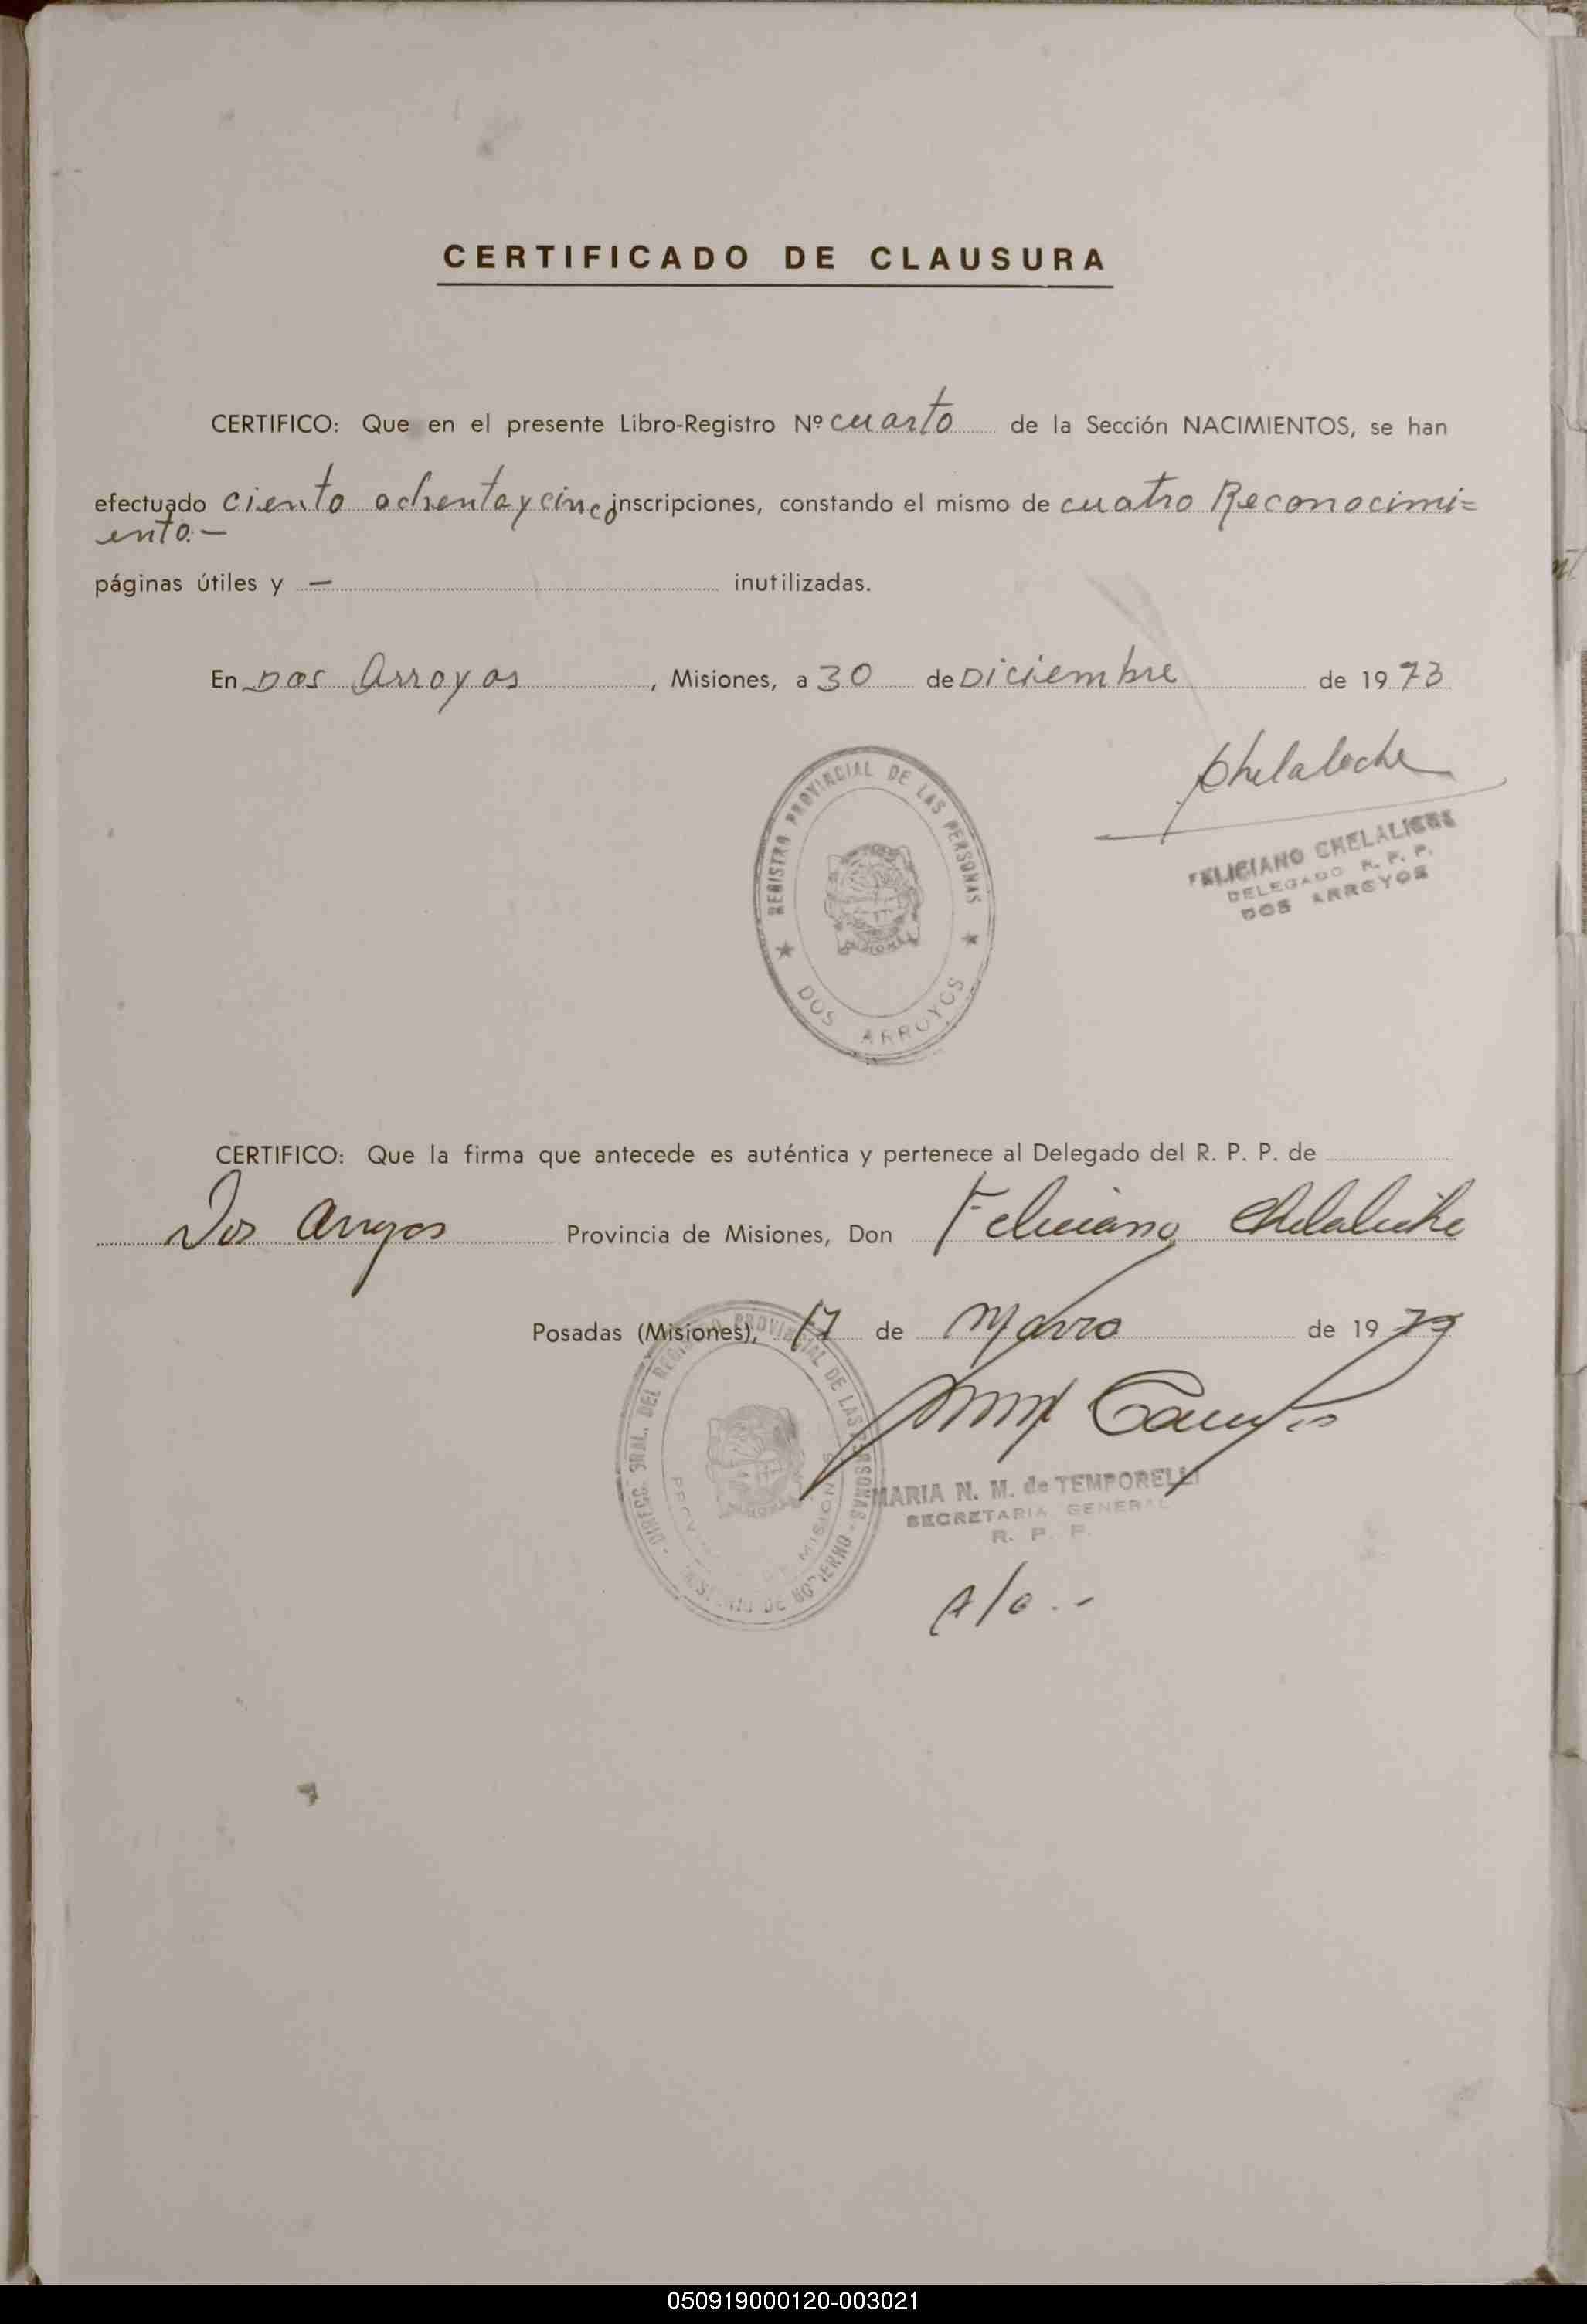 CERTIFICADO DE CLAUSURA
CERTIFICO: Que en el presente Libro-Registro Nº cuarto de la Sección NACIMIENTOS, se han
efectuado ciento ochenta y cinco inscripciones, constando el mismo de cuatro Reconocimi=
ento.—
páginas útiles y — inutilizadas.
En Dos Arroyos, Misiones, a 30 de Diciembre de 1973
REGISTRO PROVINCIAL DE LAS PERSONAS
DOS ARROYOS
FELICIANO CHELALICHE
DELEGADO R. P. P.
DOS ARROYOS
CERTIFICO: Que la firma que antecede es auténtica y pertenece al Delegado del R. P. P. de
Dos Arroyos Provincia de Misiones, Don Feliciano Chelaliche
Posadas (Misiones), 17 de Marzo de 1979
DIRECC. GRAL. DEL REGISTRO PROVINCIAL DE LAS PERSONAS - MINISTERIO DE GOBIERNO
MARIA N. M. de TEMPORELLI
SECRETARIA GENERAL
R. P. P.
050919000120-003021